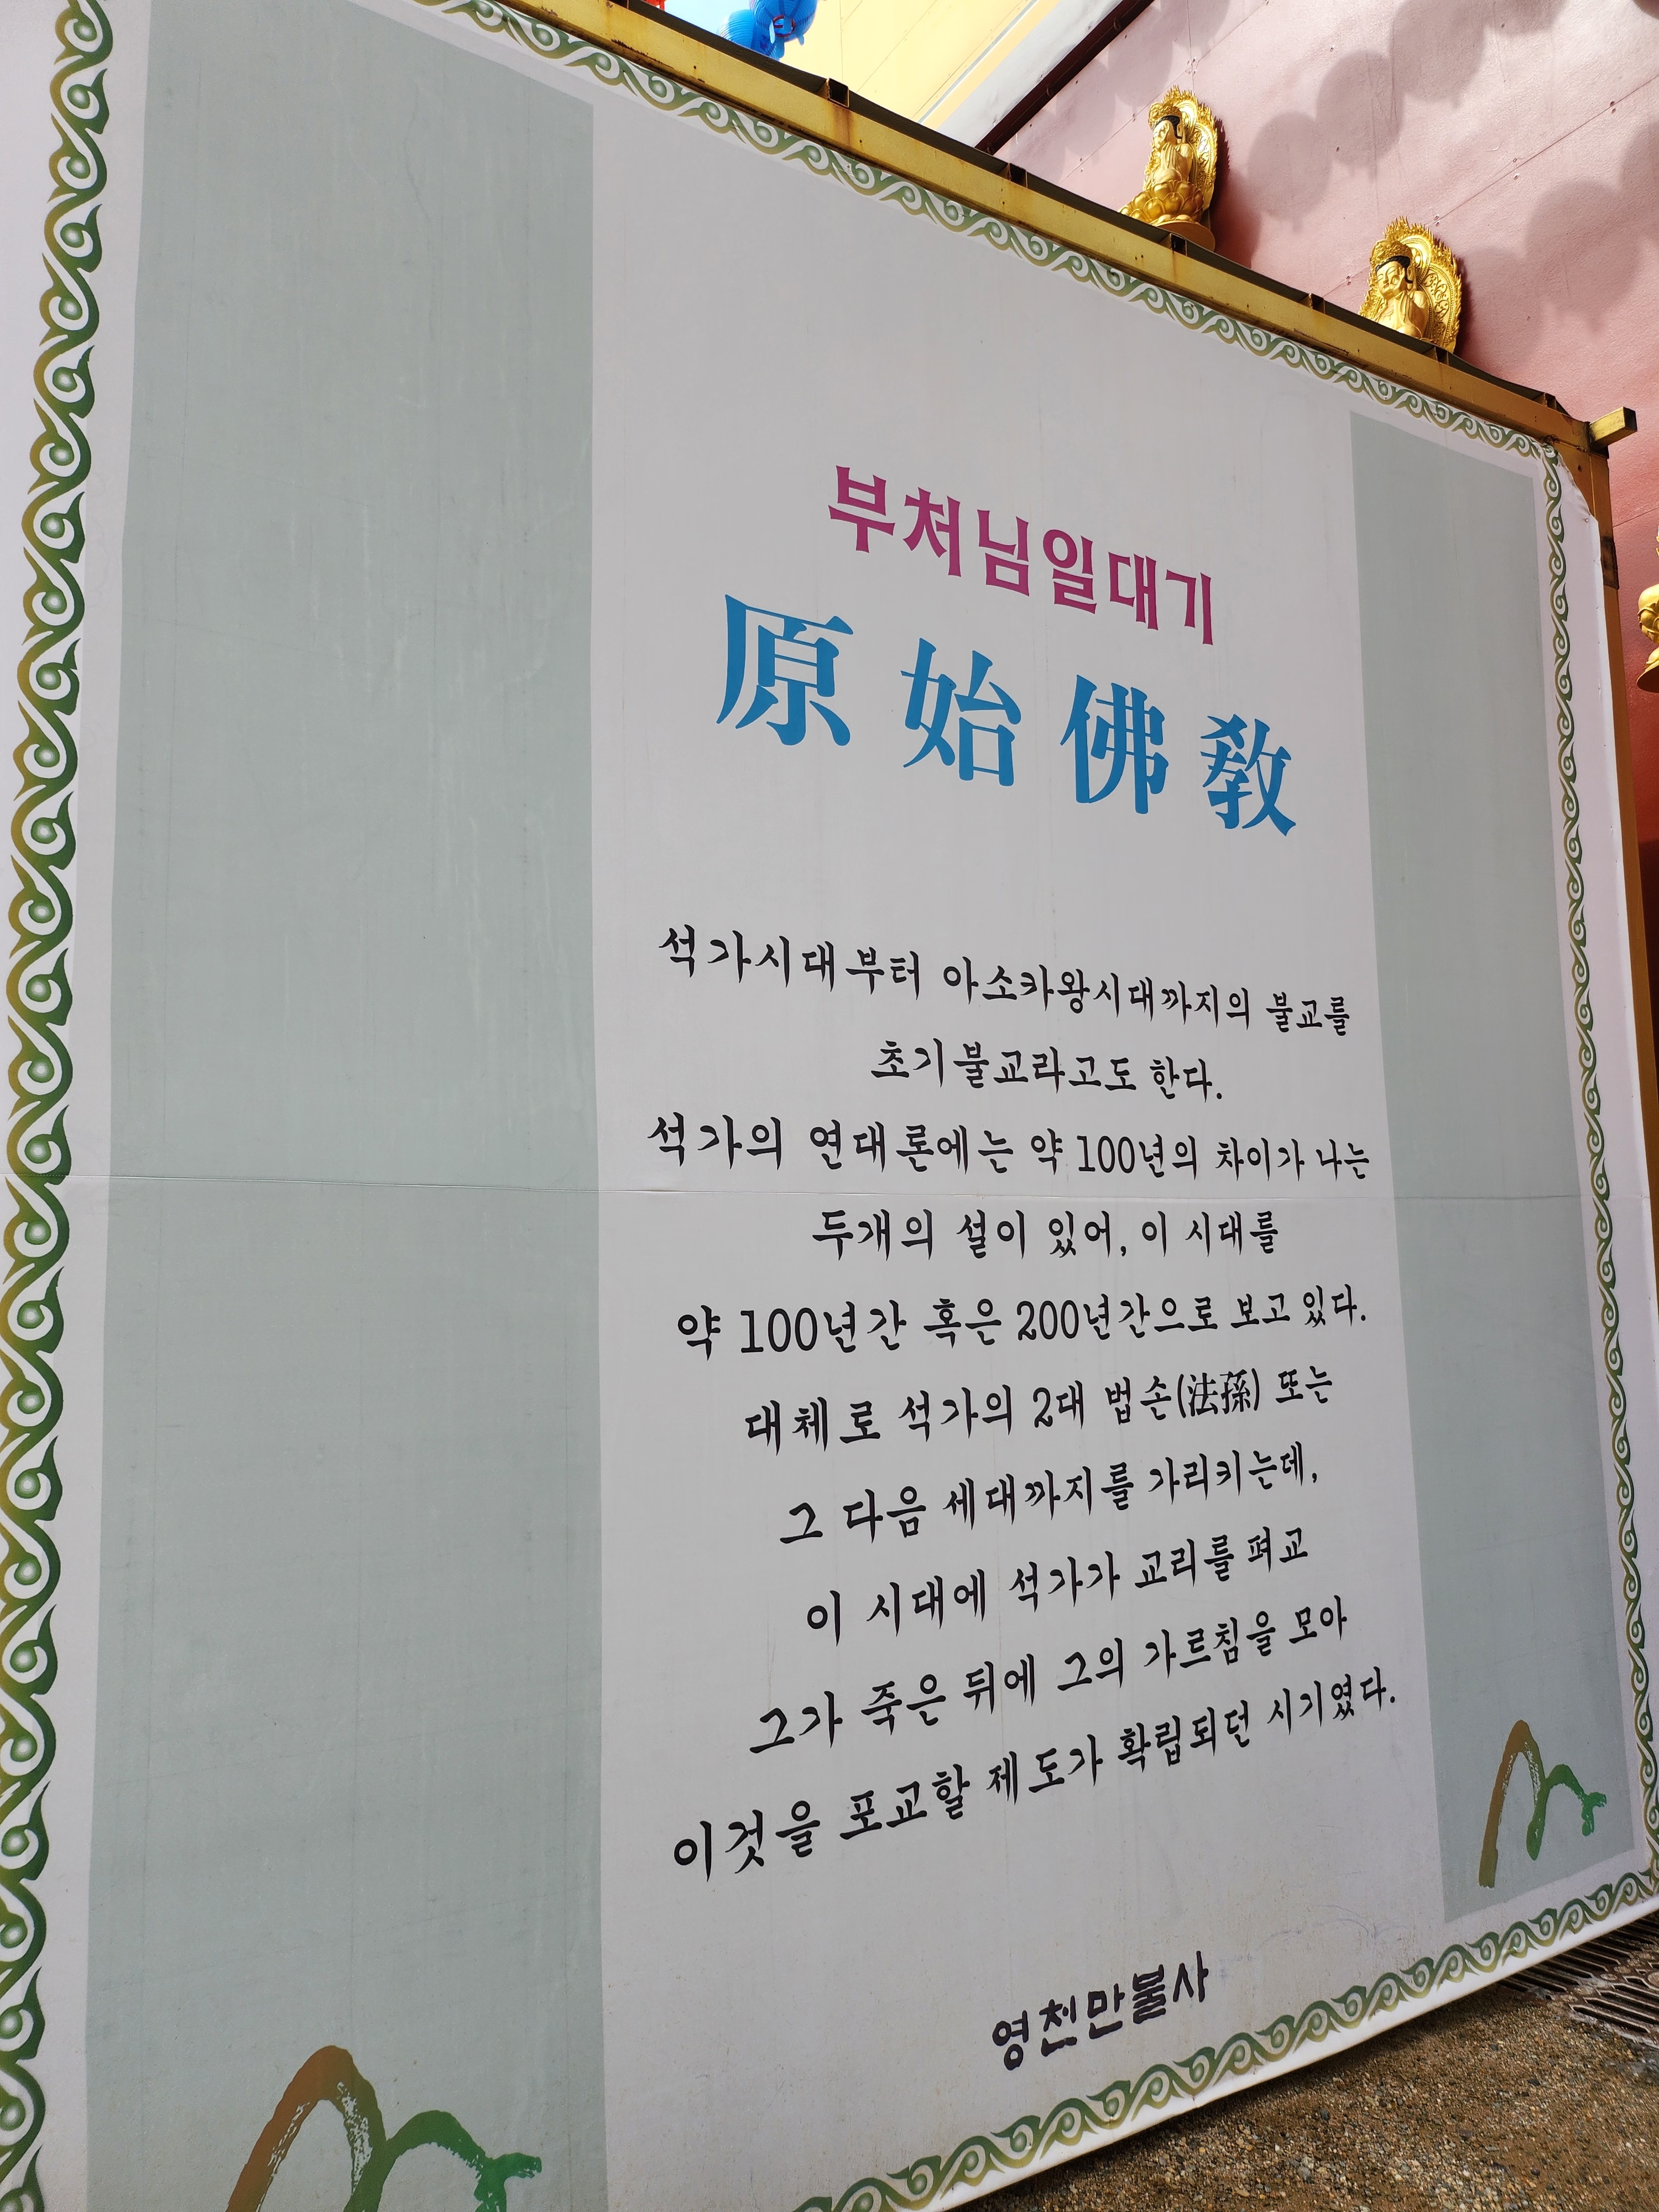 부처님일대기
原始佛敎
석가시대부터 아소카왕시대까지의 불교를
초기불교라고도 한다.
석가의 연대론에는 약 100년의 차이가 나는
두개의 설이 있어, 이 시대를
약 100년간 혹은 200년간으로 보고 있다.
대체로 석가의 2대 법손(法孫) 또는
그 다음 세대까지를 가리키는데,
이 시대에 석가가 교리를 펴고
그가 죽은 뒤에 그의 가르침을 모아
이것을 포교할 제도가 확립되던 시기였다.
영천만불사